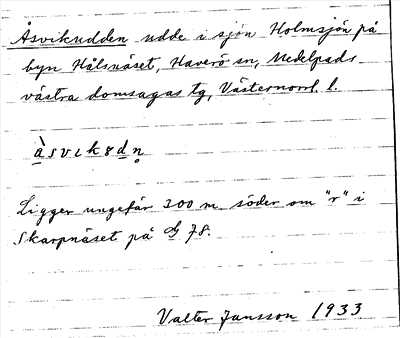 Åsvikudden udde i sjön Holmsjön på
byn Hålsnäset, Haverö sn, Medelpads
västra domsagas tg, Västernorrl. l.
àsvikȣdn̥
Ligger ungefär 300 m söder om "r" i
Skarpnäset på G 78.
Valter Jansson 1933